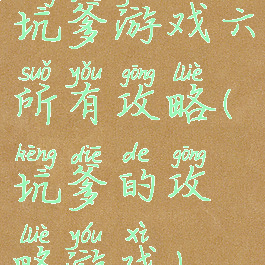 坑爹游戏六
suǒ yǒu gōng lüè
所有攻略(
kēng diē de gōng
坑爹的攻
lüè yóu xì
略游戏)